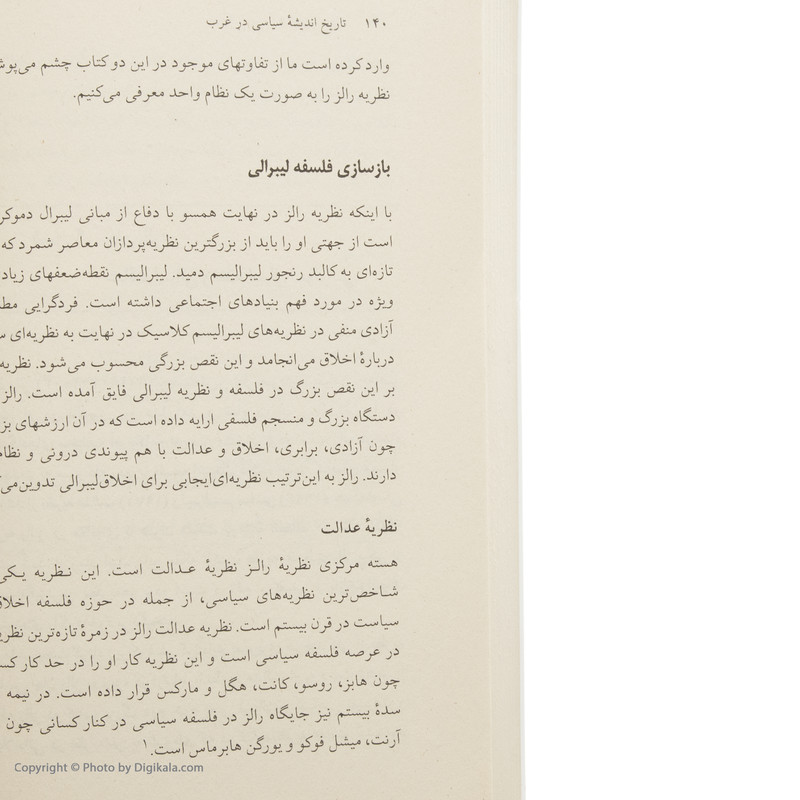 ۱۴۰ تاریخ اندیشهٔ سیاسی در غرب
وارد کرده است ما از تفاوتهای موجود در این دو کتاب چشم می‌پوش
نظریه رالز را به صورت یک نظام واحد معرفی می‌کنیم.
بازسازی فلسفه لیبرالی
با اینکه نظریه رالز در نهایت همسو با دفاع از مبانی لیبرال دموکر
است از جهتی او را باید از بزرگترین نظریه‌پردازان معاصر شمرد که
تازه‌ای به کالبد رنجور لیبرالیسم دمید. لیبرالیسم نقطه‌ضعفهای زیاد
ویژه در مورد فهم بنیادهای اجتماعی داشته است. فردگرایی مط
آزادی منفی در نظریه‌های لیبرالیسم کلاسیک در نهایت به نظریه‌ای س
دربارهٔ اخلاق می‌انجامد و این نقص بزرگی محسوب می‌شود. نظریه
بر این نقص بزرگ در فلسفه و نظریه لیبرالی فایق آمده است. رالز
دستگاه بزرگ و منسجم فلسفی ارایه داده است که در آن ارزشهای بز
چون آزادی، برابری، اخلاق و عدالت با هم پیوندی درونی و نظا
دارند. رالز به این‌ترتیب نظریه‌ای‌ایجابی برای اخلاق‌لیبرالی تدوین‌می
نظریهٔ عدالت
هسته مرکزی نظریهٔ رالـز نظریهٔ عـدالت است. این نـظریه یـکی
شـاخص‌ترین نظریه‌های سیاسی، از جمله در حوزه فلسفه اخلاق
سیاست در قرن بیستم است. نظریه عدالت رالز در زمرهٔ تازه‌ترین نظری
در عرصه فلسفه سیاسی است و این نظریه کار او را در حد کار کس
چون هابز، روسو، کانت، هگل و مارکس قرار داده است. در نیمه
سدهٔ بیستم نیز جایگاه رالز در فلسفه سیاسی در کنار کسانی چون
آرنت، میشل فوکو و یورگن هابرماس است.۱
Copyright © Photo by Digikala.com